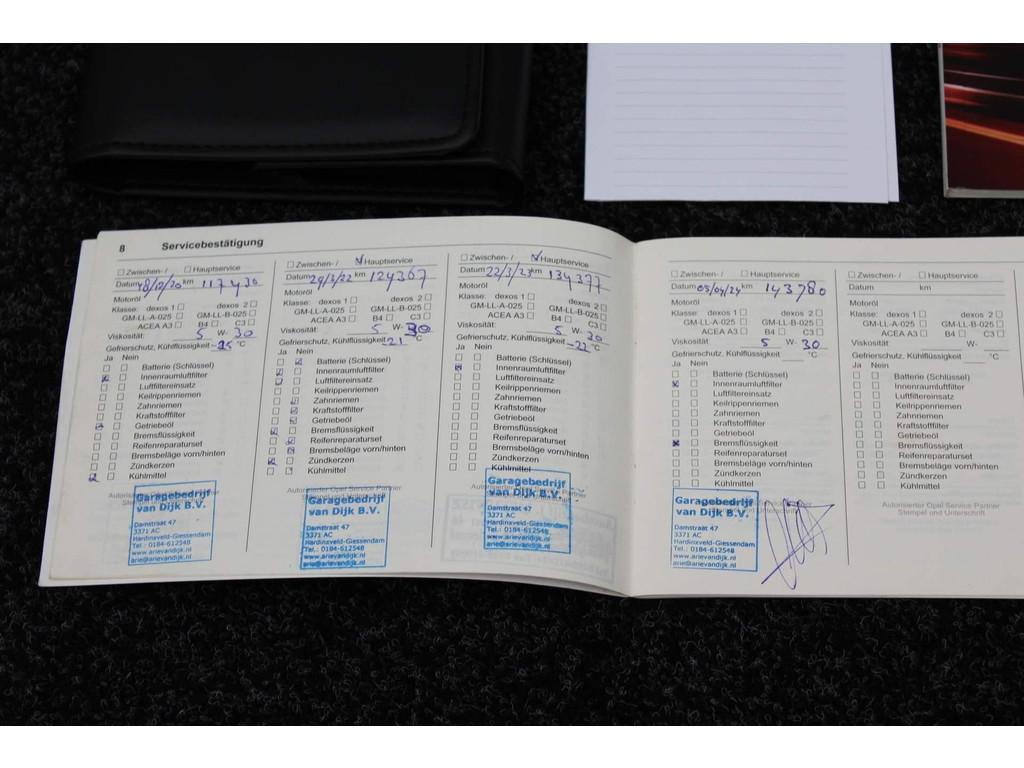 8 Servicebestätigung
Zwischen- / Hauptservice
Datum 18/12/20 km 117430
Motoröl
Klasse: dexos 1 dexos 2
GM-LL-A-025 GM-LL-B-025
ACEA A3 B4 C3
Viskosität: 5 W- 30
Gefrierschutz, Kühlflüssigkeit -25 °C
Ja Nein
Batterie (Schlüssel)
Innenraumluftfilter
Luftfiltereinsatz
Keilrippenriemen
Zahnriemen
Kraftstofffilter
Getriebeöl
Bremsflüssigkeit
Reifenreparaturset
Bremsbeläge vorn/hinten
Zündkerzen
Kühlmittel
Autorisierter Opel Service Partner
Stempel und Unterschrift
Garagebedrijf
van Dijk B.V.
Damstraat 47
3371 AC
Hardinxveld-Giessendam
Tel.: 0184-612548
www.arievandijk.nl
arie@arievandijk.nl
Zwischen- / Hauptservice
Datum 29/3/22 km 124367
Motoröl
Klasse: dexos 1 dexos 2
GM-LL-A-025 GM-LL-B-025
ACEA A3 B4 C3
Viskosität: 5 W- 30
Gefrierschutz, Kühlflüssigkeit -21 °C
Ja Nein
Batterie (Schlüssel)
Innenraumluftfilter
Luftfiltereinsatz
Keilrippenriemen
Zahnriemen
Kraftstofffilter
Getriebeöl
Bremsflüssigkeit
Reifenreparaturset
Bremsbeläge vorn/hinten
Zündkerzen
Kühlmittel
Autorisierter Opel Service Partner
Stempel und Unterschrift
Garagebedrijf
van Dijk B.V.
Damstraat 47
3371 AC
Hardinxveld-Giessendam
Tel.: 0184-612548
www.arievandijk.nl
arie@arievandijk.nl
Zwischen- / Hauptservice
Datum 22/3/23 km 134377
Motoröl
Klasse: dexos 1 dexos 2
GM-LL-A-025 GM-LL-B-025
ACEA A3 B4 C3
Viskosität: 5 W- 30
Gefrierschutz, Kühlflüssigkeit -22 °C
Ja Nein
Batterie (Schlüssel)
Innenraumluftfilter
Luftfiltereinsatz
Keilrippenriemen
Zahnriemen
Kraftstofffilter
Getriebeöl
Bremsflüssigkeit
Reifenreparaturset
Bremsbeläge vorn/hinten
Zündkerzen
Kühlmittel
Autorisierter Opel Service Partner
Garagebedrijf
van Dijk B.V.
Damstraat 47
3371 AC
Hardinxveld-Giessendam
Tel.: 0184-612548
www.arievandijk.nl
arie@arievandijk.nl
Zwischen- / Hauptservice
Datum 05/04/24 km 143780
Motoröl
Klasse: dexos 1 dexos 2
GM-LL-A-025 GM-LL-B-025
ACEA A3 B4 C3
Viskosität: 5 W- 30
Gefrierschutz, Kühlflüssigkeit °C
Ja Nein
Batterie (Schlüssel)
Innenraumluftfilter
Luftfiltereinsatz
Keilrippenriemen
Zahnriemen
Kraftstofffilter
Getriebeöl
Bremsflüssigkeit
Reifenreparaturset
Bremsbeläge vorn/hinten
Zündkerzen
Kühlmittel
Garagebedrijf
van Dijk B.V.
Damstraat 47
3371 AC
Hardinxveld-Giessendam
Tel.: 0184-612548
www.arievandijk.nl
arie@arievandijk.nl
Zwischen- / Hauptservice
Datum km
Motoröl
Klasse: dexos 1 dexos 2
GM-LL-A-025 GM-LL-B-025
ACEA A3 B4 C3
Viskosität: W-
Gefrierschutz, Kühlflüssigkeit °C
Ja Nein
Batterie (Schlüssel)
Innenraumluftfilter
Luftfiltereinsatz
Keilrippenriemen
Zahnriemen
Kraftstofffilter
Getriebeöl
Bremsflüssigkeit
Reifenreparaturset
Bremsbeläge vorn/hinten
Zündkerzen
Kühlmittel
Autorisierter Opel Service Partner
Stempel und Unterschrift